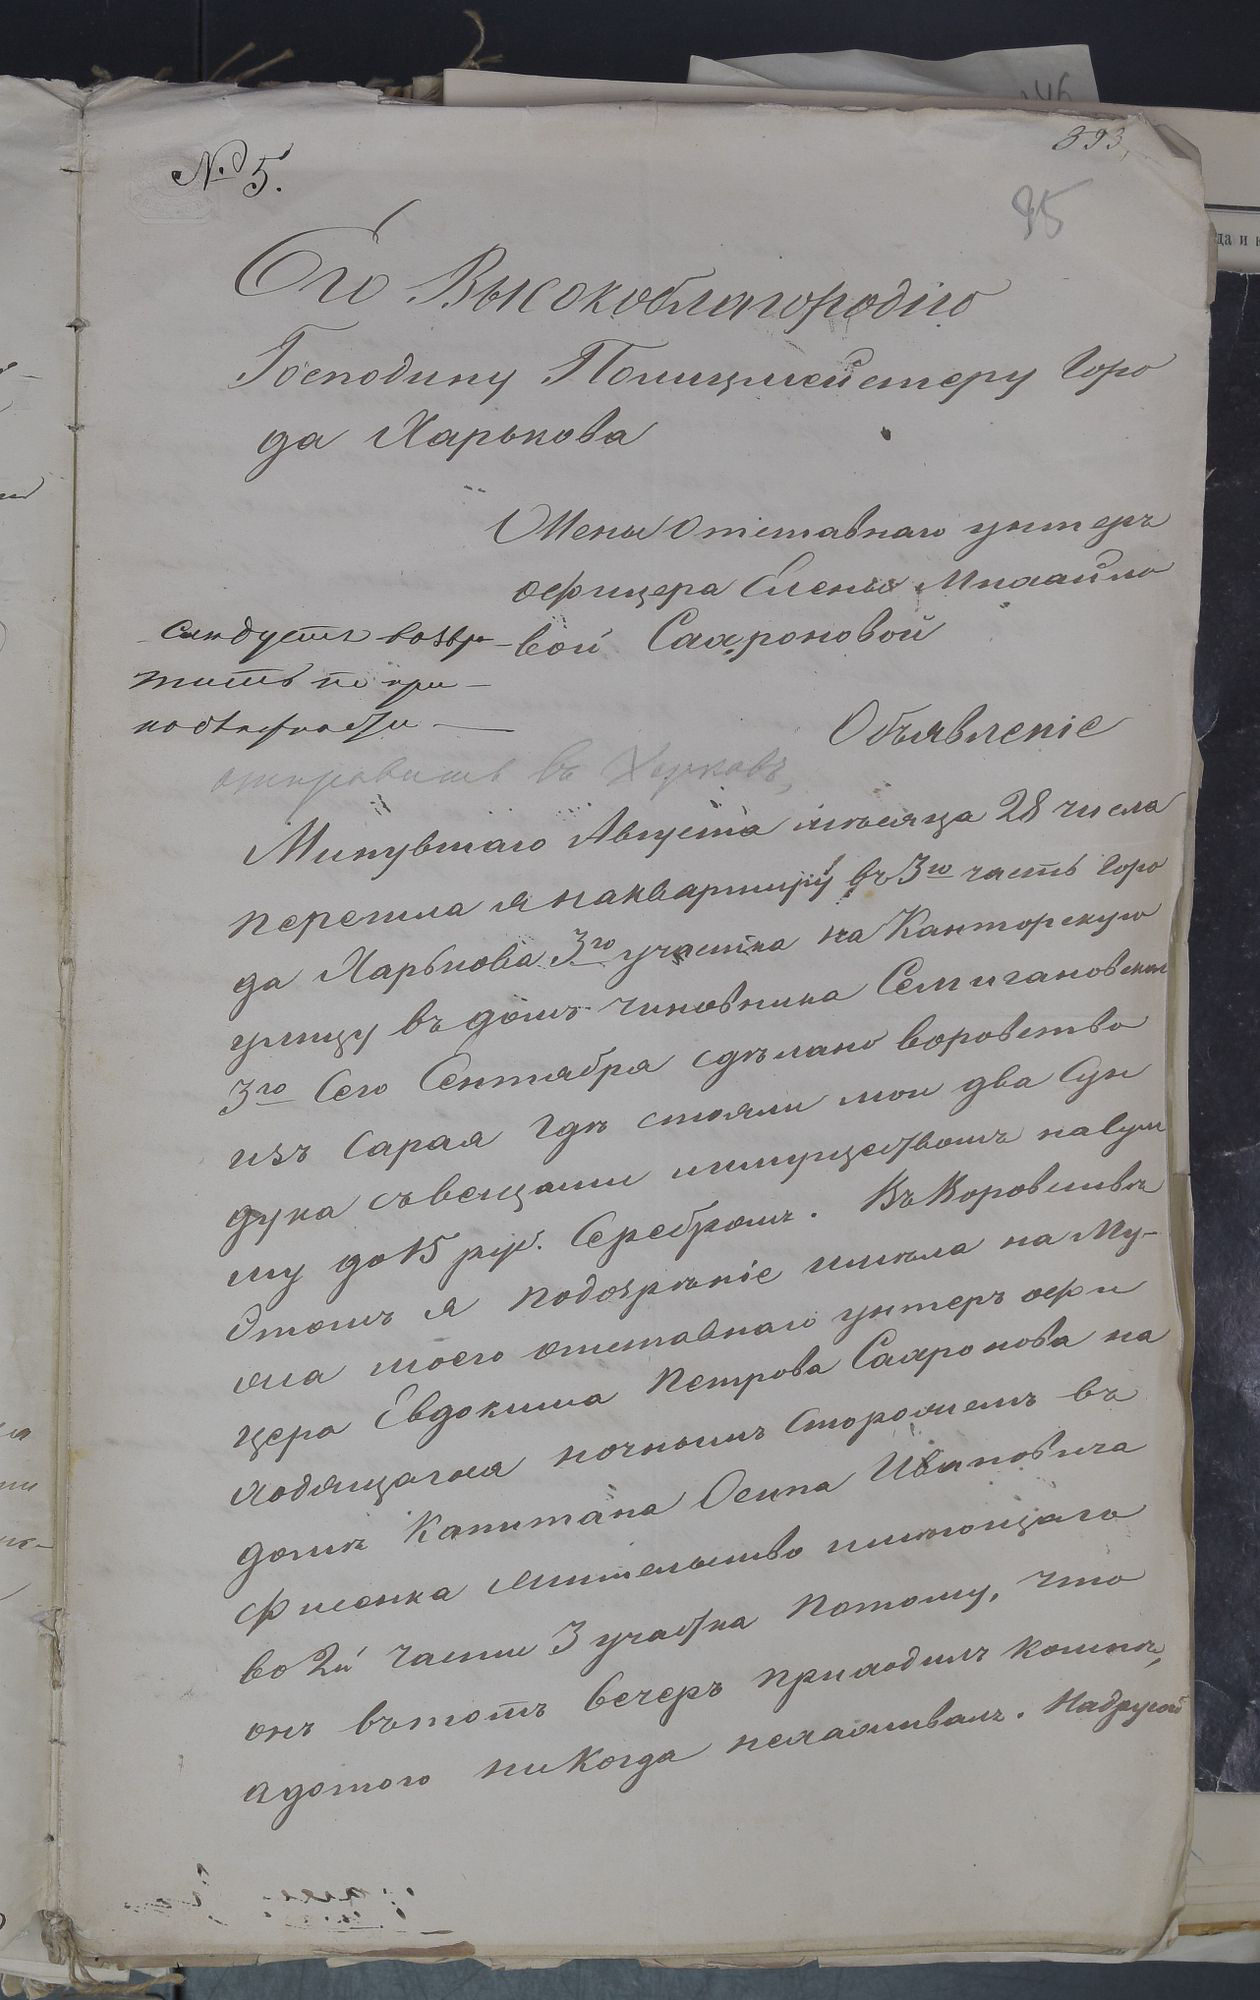 № 5.
393.
85
Его Высокоблагородію
Господину Полицмейстеру Горо
да Харькова
Жены отставнаго унтеръ
офицера Елены Михайло
вой Сафроновой
следуетъ возвра
тить по при
надлежности
отправить въ Харьковъ,
Объявленіе
Минувшаго Августа мѣсяца 28 числа
перешла я наквартиру въ 3ю часть Горо
да Харькова 3го участка на Канторскую
улицу въ домъ чиновника Семигановскаго
3го Сего Сентября сдѣлано воровство
изъ Сарая гдѣ стояли мои два Сун
дука съвещами имуществомъ насум
му до 15 руб. Серебромъ. Въ Воровствѣ
этомъ я подозрѣніе имѣла на Му-
жа моего отставнаго унтеръ офи
цера Евдокима Петрова Сафронова на
ходящагося ночнымъ Сторожемъ въ
домѣ Капитана Осипа Ивановича
жительство имѣющаго
во 2й части 3 участка потому, что
онъ вътотъ вечеръ приходилъ комнѣ,
адотого никогда нехаживалъ. Надругой